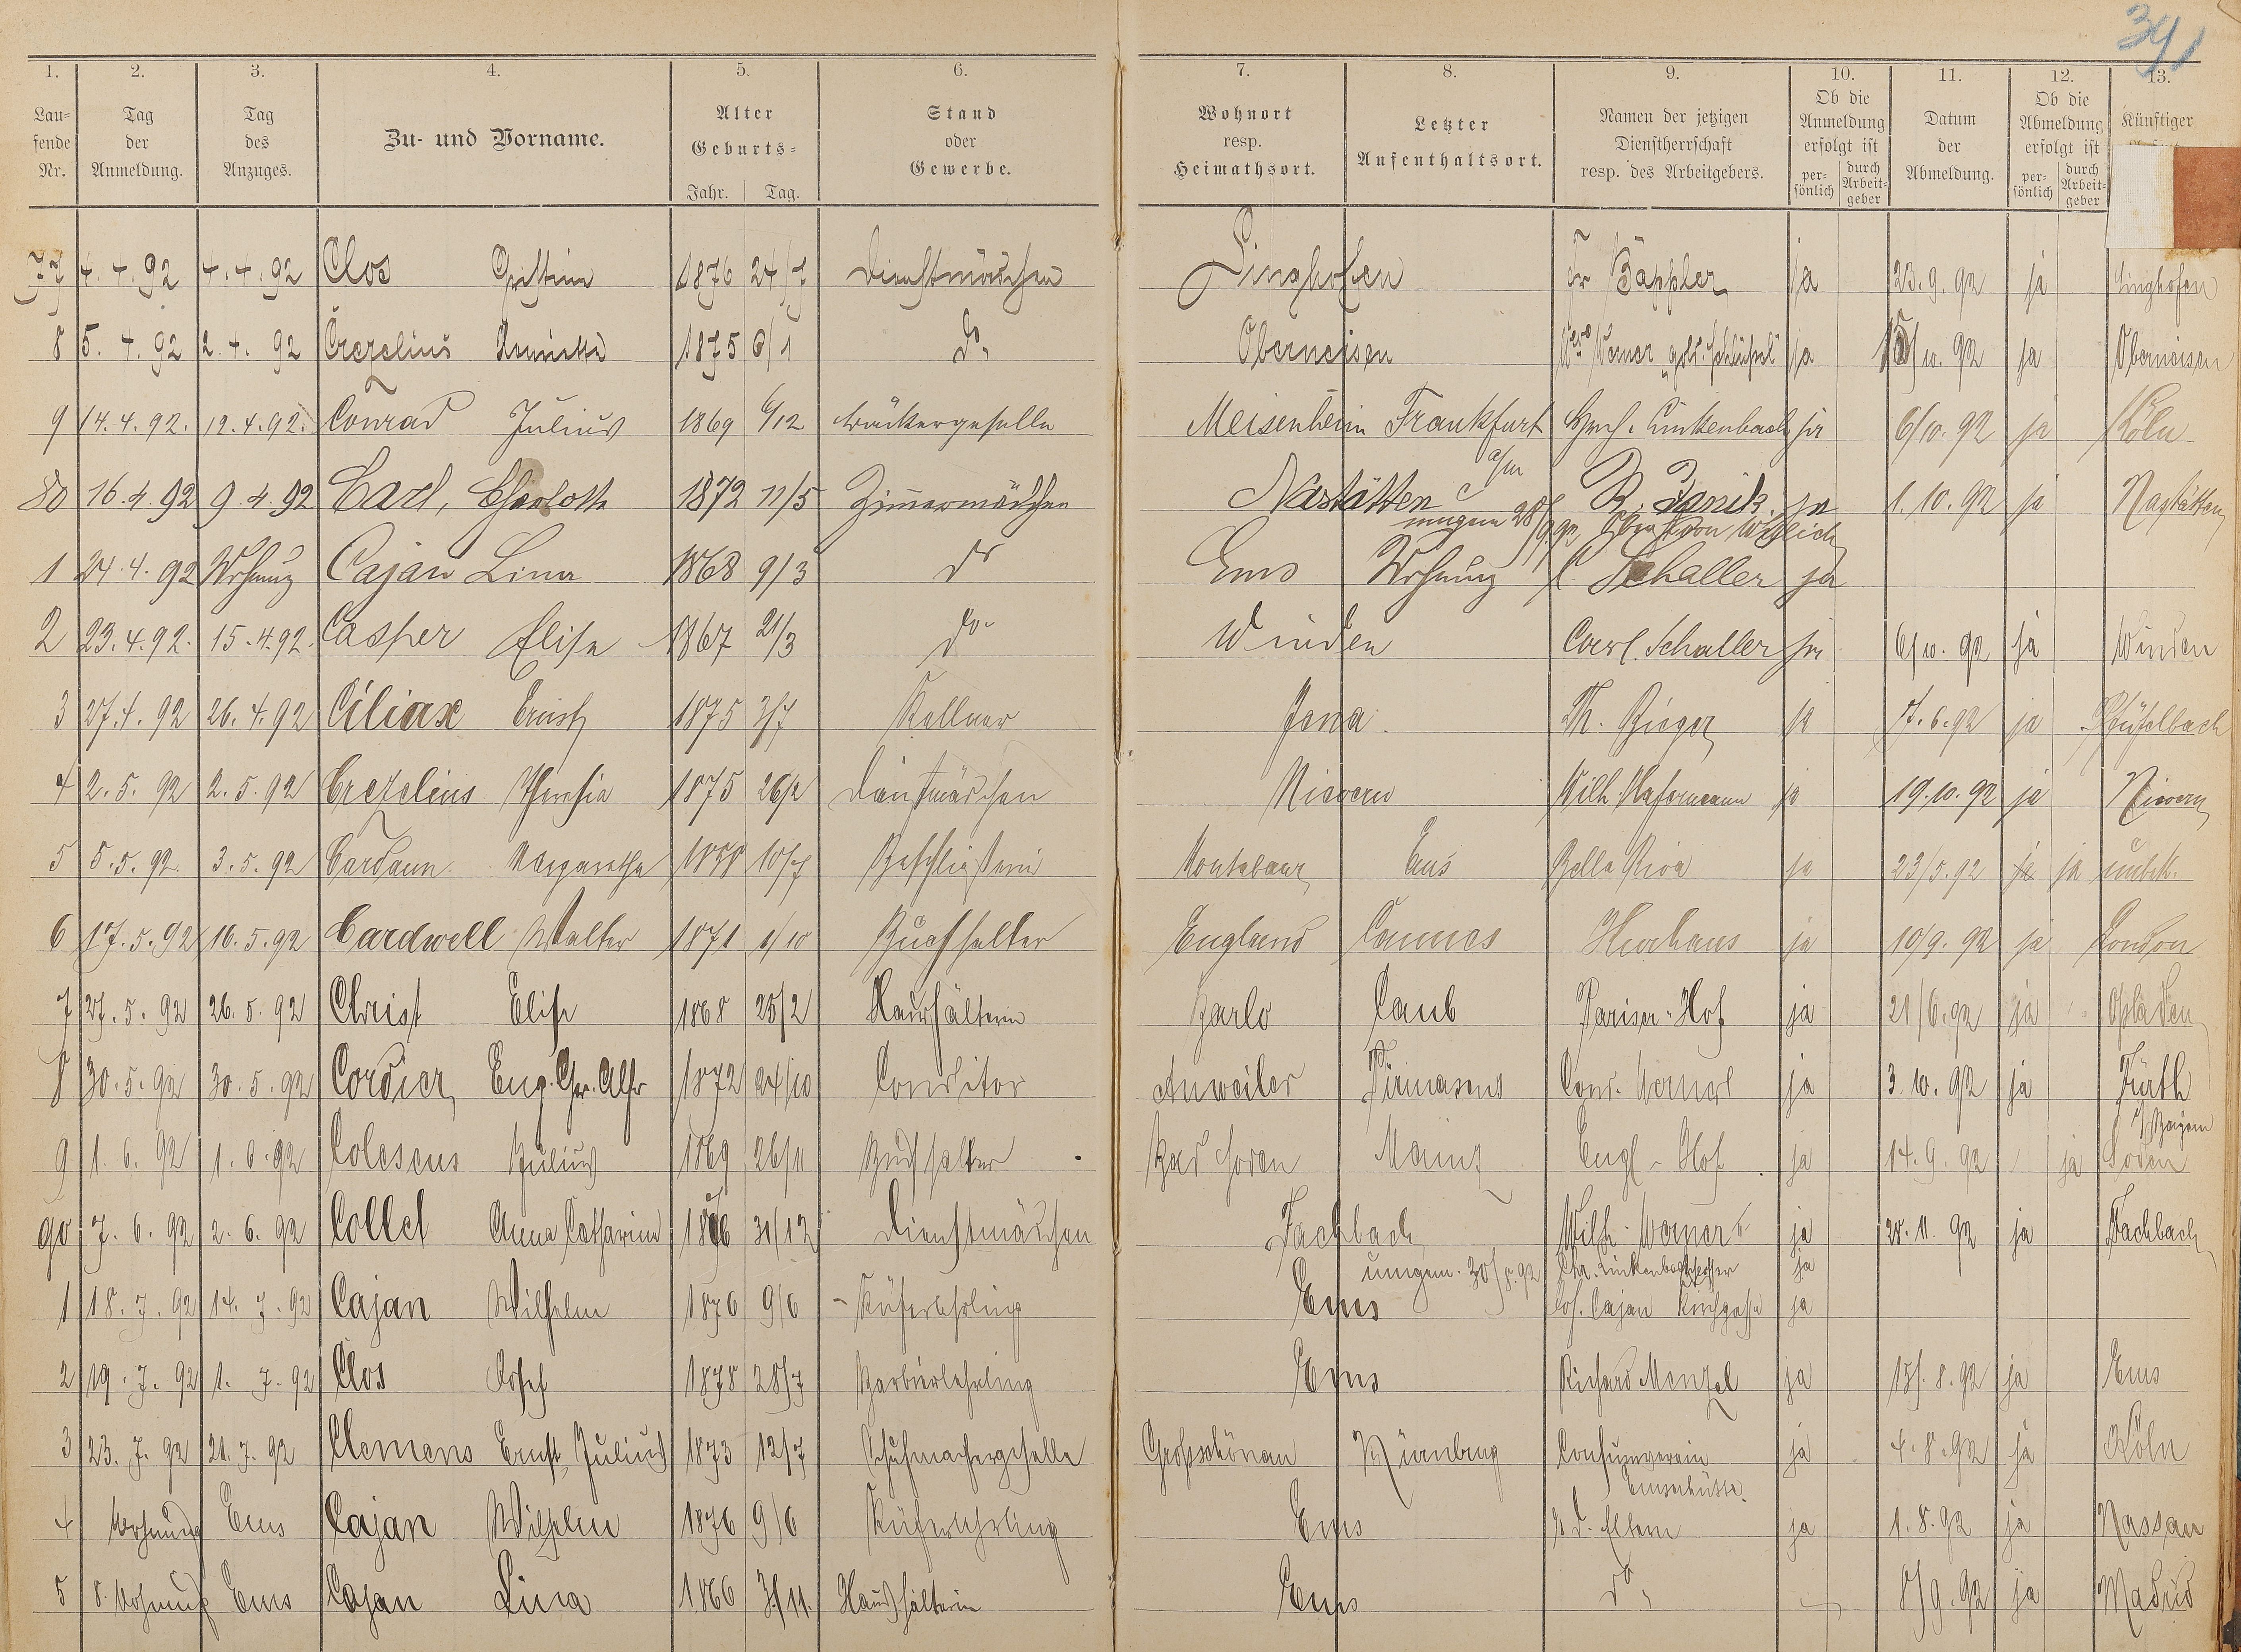 391
1. 2. 3. 4. 5. 6. 7. 8. 9. 10. 11. 12. 13.
Laufende Nr. Tag der Anmeldung. Tag des Anzuges. Zu- und Vorname. Alter Geburts= Jahr. Tag. Stand oder Gewerbe. Wohnort resp. Heimathsort. Letzter Aufenthaltsort. Namen der jetzigen Dienstherrschaft resp. des Arbeitgebers. Ob die Anmeldung erfolgt ist persönlich durch Arbeitgeber Datum der Abmeldung. Ob die Abmeldung erfolgt ist persönlich durch Arbeitgeber Künftiger
77 4.4.92 4.4.92 Clos Christine 1876 24/7 Dienstmädchen Singhofen Bäppler ja 23.9.92 ja Singhofen
8 5.4.92 2.4.92 Crezelius Henriette 1875 6/1 do. Oberneisen Werner "gold. Schlüssel" ja 15/10.92 ja Oberneisen
9 14.4.92. 12.4.92. Conrad Julius 1869 6/12 Bäckergeselle Meisenheim Frankfurt a/m Linkenbach ja 6/10.92 ja Köln
80 16.4.92 9.4.92 Carl, Charlotte 1872 11/5 Zimmermädchen Nastätten R. Janik ja 1.10.92 ja Nastätten
umgem 28/9.92
1 24.4.92 Wohnung Cajan Lina 1868 9/3 do Ems Wohnung C. Schaller ja
2 23.4.92. 15.4.92. Casper Elise 1867 21/3 do Winden Carl Schaller ja 6/10.92 ja Winden
3 27.4.92 26.4.92 Ciliax Ernst 1875 3/7 Kellner Jena. Th. Rieger ja 17.6.92 ja
4 2.5.92 2.5.92 Crezelius Theresia 1875 26/2 Dienstmädchen Nievern Wilh. Hasermann ja 19.10.92 ja Nievern
5 5.5.92. 3.5.92 Cardaun Margaretha 1858 10/7 Beschließerin Montabaur Ems Bella Riva ja 23/5.92 ja ja unbek.
6 17.5.92 16.5.92 Cardwell Walter 1871 1/10 Buchhalter England Cannes Kurhaus ja 10/9.92 ja London
7 27.5.92 26.5.92 Christ Elise 1868 25/2 Haushälterin Barlo Caub Pariser-Hof ja 21/6.92 ja Opladen
8 30.5.92 30.5.92 Cordier, Eug. Chr. Alfr 1872 24/10 Conditor Anweiler Pirmasens Cond. Werner ja 3.10.92 ja Fürth
i/Bayern
9 1.6.92 1.6.92 Coleseus Julius 1869 26/11 Buchhalter Bad Soden Mainz Engl-Hof ja 14.9.92 ja Soden
90 7.6.92 2.6.92 Collet Anna Catharina 1876 31/12 Dienstmädchen Fachbach Wilh. Werner ja 28.11.92 ja Fachbach
umgem. 30/8.92 Chr. Linkenbach ja
1 18.7.92 14.7.92 Cajan Wilhelm 1876 9/6 - Küferlehrling Ems Jos. Cajan Kirchgasse ja
2 19.7.92 1.7.92 Clos Josef 1878 28/7 Barbierlehrling Ems Richard Menzel ja 15/.8.92 ja Ems
3 23.7.92 21.7.92 Clemens Ernst Julius 1873 12/7 Schuhmachergeselle Großschönau Nürnberg Consumverein ja 4.8.92 ja Köln
Emserhütte.
4 Wohnung Ems Cajan Wilhelm 1876 9/6 Küferlehrling Ems b. d. Eltern ja 1.8.92 ja Nassau
5 Wohnung Ems Cajan Lina 1866 3/11. Haushälterin Ems do. 8/9.92 ja Madrid